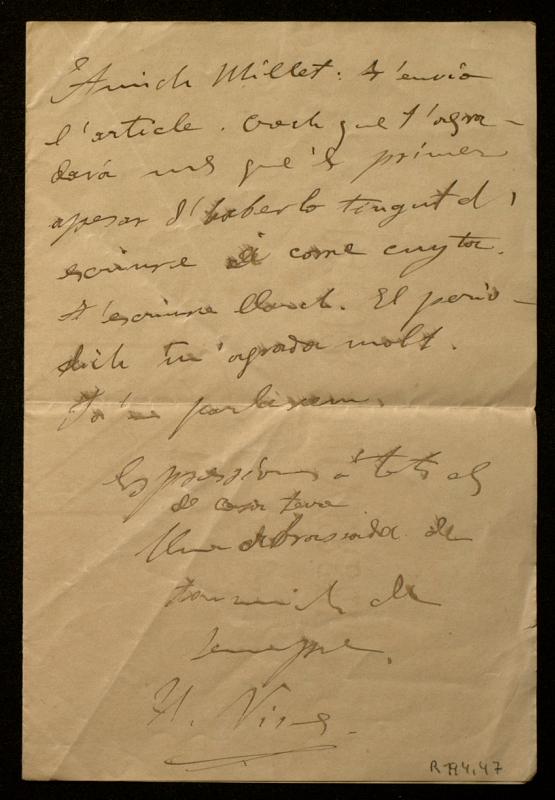 Amich Millet: T'envío
l'article. Crech que t'agra-
dará més que'l primer
apesar d'haberlo tingut d'
escriure corre cuyta.
T'escriure llarch. El perio-
dich m'agrada molt.
Ja'n parlarem.
Expressions á tots els
de casa teva
Una abrassada de
ton amich de
sempre.
A. Vives
R 194,47